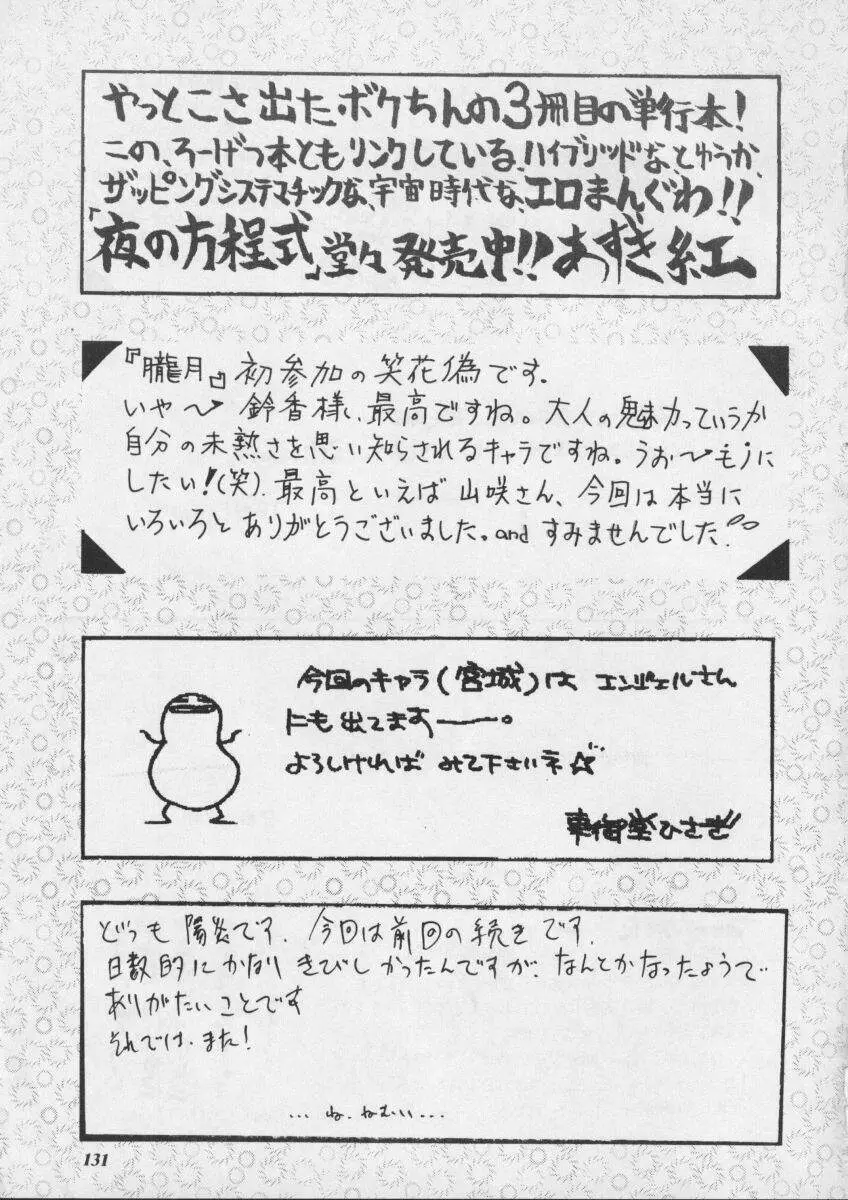 やっとこさ出たボクちんの3冊目の単行本!
この、ろーげつ本ともリンクしている、ハイブリッドな、とゆうか、
ザッピングシステマチックな、宇宙時代な、エロまんぐわ!!
「夜の方程式」堂々発売中!!あずき紅
『朧月』初参加の笑花偽です.
いや〜 鈴香様、最高ですね。大人の魅力っていうか
自分の未熟さを思い知らされるキャラですね。うお〜モノに
したい!(笑). 最高といえば山咲さん、今回は本当に
いろいろとありがとうございました。andすみませんでした!
今回のキャラ(宮城)は エンジェルさん
にも出てます――。
よろしければ みて下さいネ☆
東御堂ひさぎ
どぅも 陽炎です. 今回は前回の続きです.
日数的にかなりきびしかったんですが、なんとかなったようで
ありがたいことです
それでは、また!
... ね、ねむい...
131